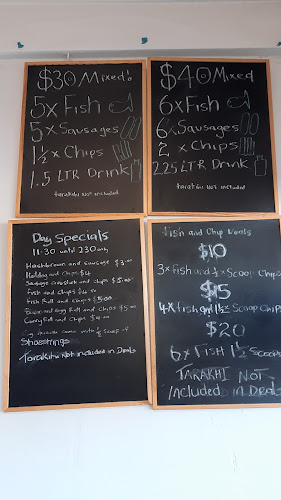 $30 Mixed!
5x Fish
5x Sausages
1½ x Chips
1.5 LTR Drink
tarakihi Not included
$40 Mixed
6x Fish
6x Sausages
2 x Chips
2.25 LTR Drink
tarakihi Not included
Day Specials
11:30 until 2:30 only
Hashbrown and Sausage $3.00
Hotdog and Chips $4
Sausage and chips $5.00
Fish and chips
Fish Roll and Chips $5.00
Bacon and egg Roll and Chips $5.00
Curry Roll and Chips $4.00
come with ½ Scoop of
Shoestrings
Tarakihi Not included in Deals
Fish and Chip Meals
$10
3x Fish and ½ x Scoop Chips
$15
4x Fish and 1½ x Scoop Chips
$20
6x Fish 1½ Scoops
TARAKHI NOT
Included in Deals